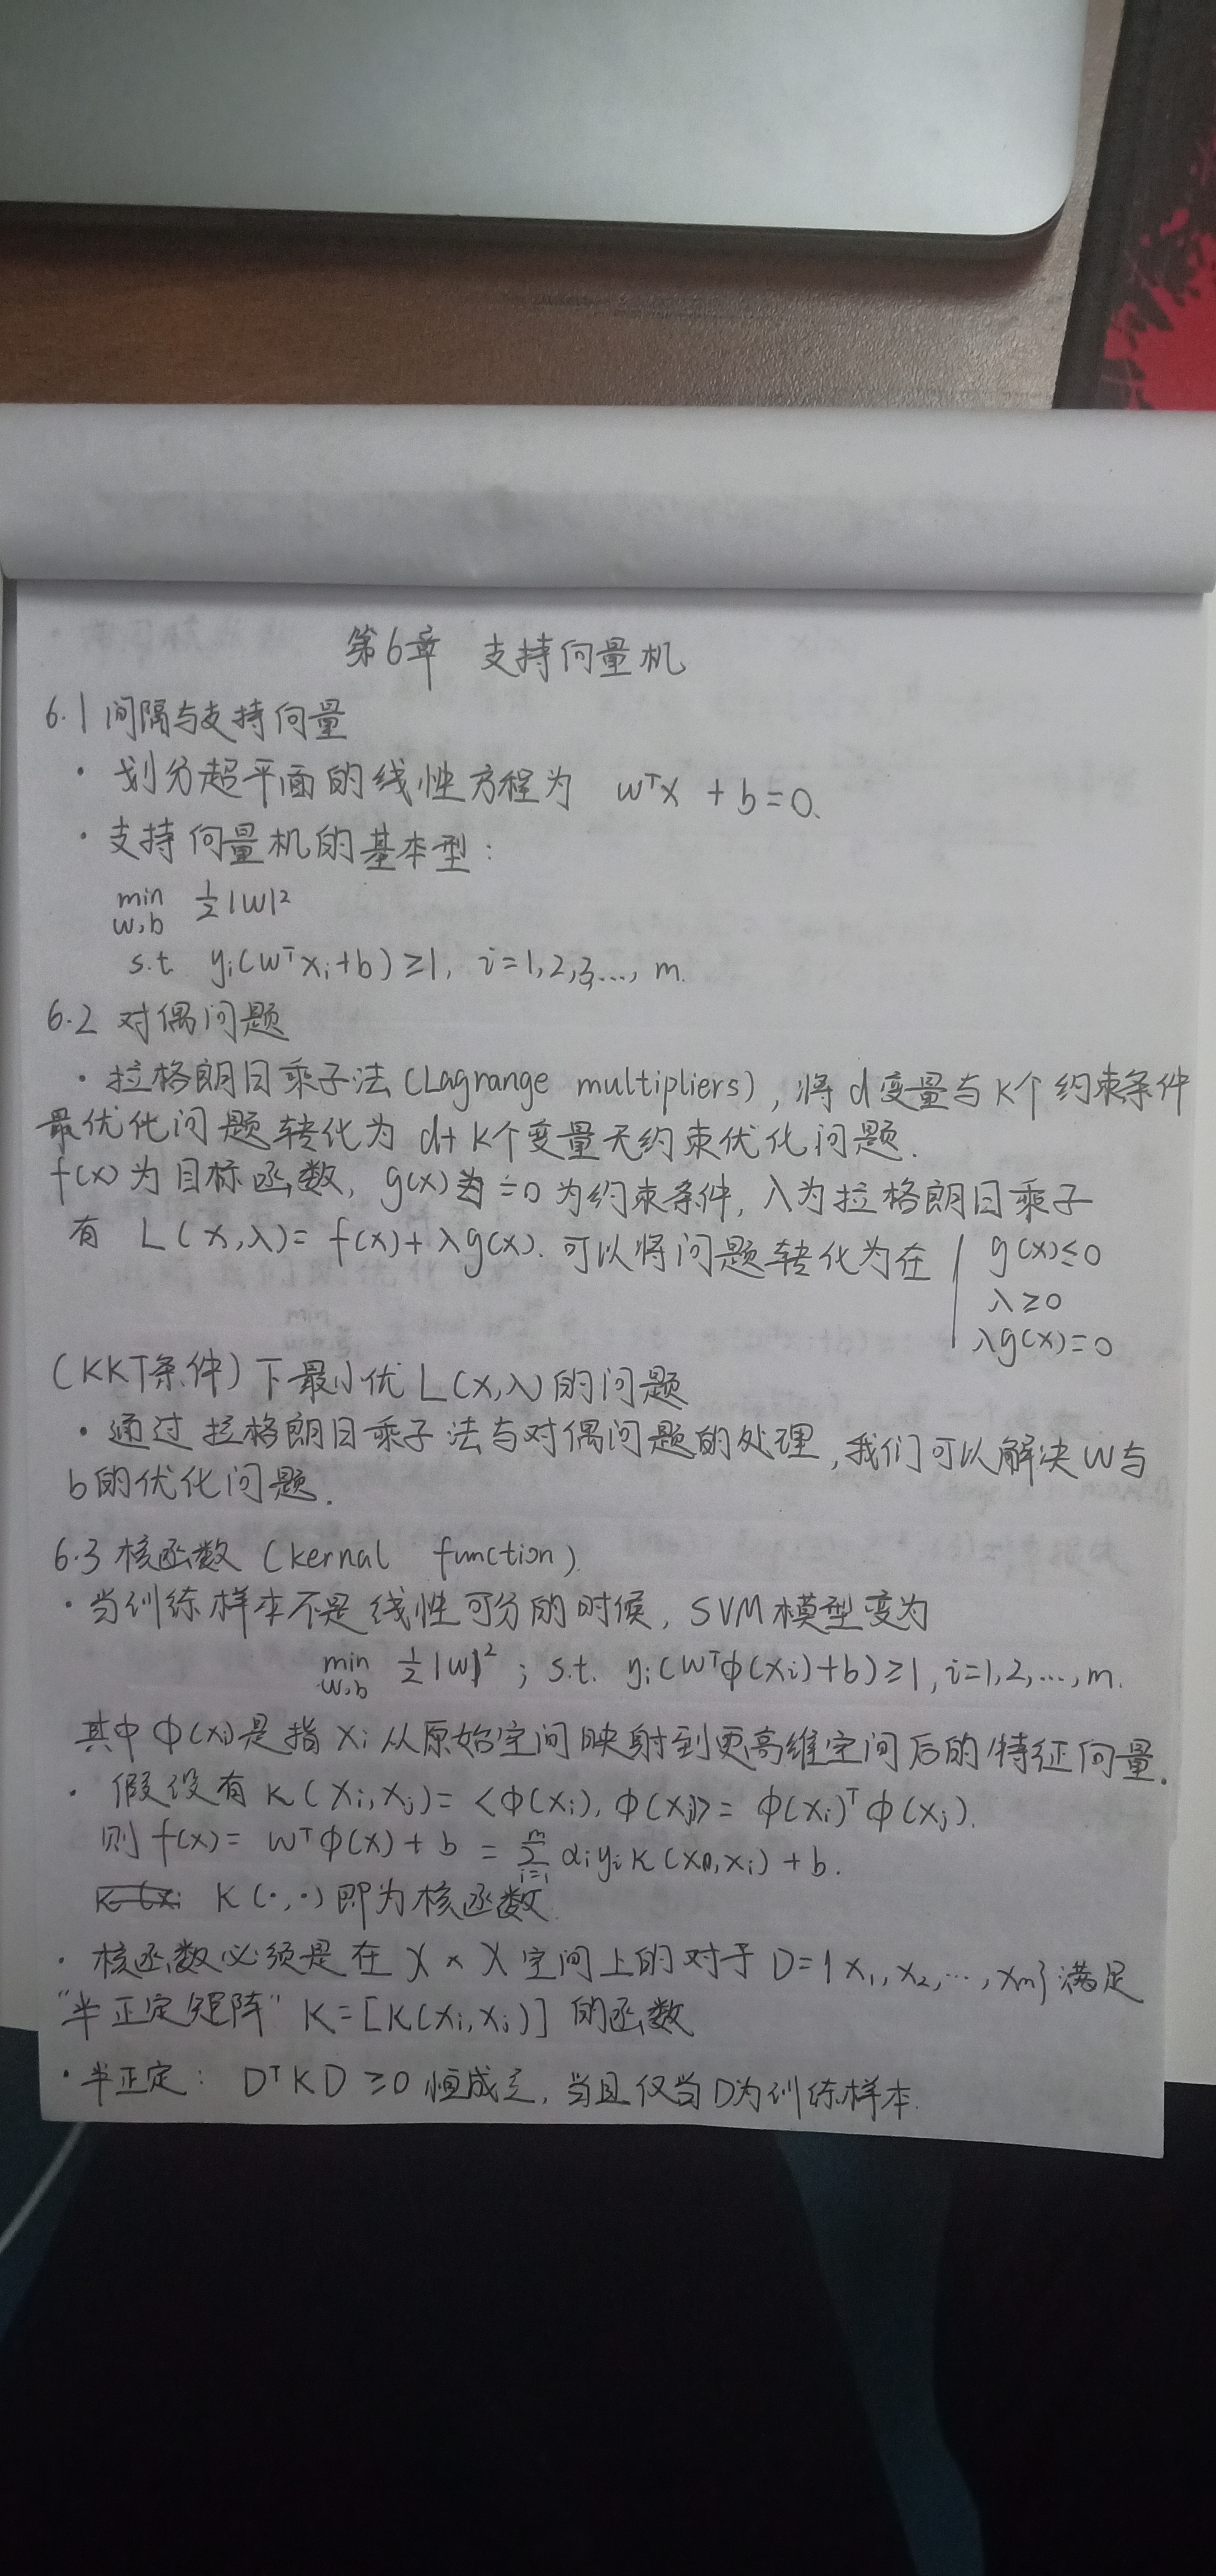 第6章 支持向量机
6.1 间隔与支持向量
· 划分超平面的线性方程为 wᵀx + b = 0.
· 支持向量机的基本型：
min ½|w|²
w,b
s.t. yᵢ(wᵀxᵢ+b) ≥1, i=1,2,3,..., m.
6.2 对偶问题
· 拉格朗日乘子法 (Lagrange multipliers), 将 d变量与 k个约束条件
最优化问题转化为 d+k个变量无约束优化问题.
f(x) 为目标函数, g(x) =0 为约束条件, λ为拉格朗日乘子
有 L(x,λ)= f(x)+λg(x). 可以将问题转化为在 { g(x)≤0
λ≥0
λg(x)=0
(KKT条件) 下最小优 L(x,λ) 的问题
· 通过拉格朗日乘子法与对偶问题的处理, 我们可以解决 w与
b的优化问题.
6.3 核函数 (kernal function)
· 当训练样本不是线性可分的时候, SVM模型变为
min ½|w|² ; s.t. yᵢ(wᵀφ(xᵢ)+b)≥1, i=1,2,...,m.
w,b
其中 φ(xᵢ)是指 xᵢ 从原始空间映射到更高维空间后的特征向量.
· 假设有 K(xᵢ,xⱼ)= <φ(xᵢ), φ(xⱼ)> = φ(xᵢ)ᵀφ(xⱼ).
则 f(x)= wᵀφ(x)+b = Σᵢ₌₁ᵐ αᵢyᵢK(x,xᵢ)+b.
K(·,·) 即为核函数
· 核函数必须是在 X × X 空间上的对于 D={x₁,x₂,...,xm} 满足
“半正定矩阵” K=[K(xᵢ,xⱼ)] 的函数
· 半正定: DᵀKD ≥0 恒成立, 当且仅当D为训练样本.